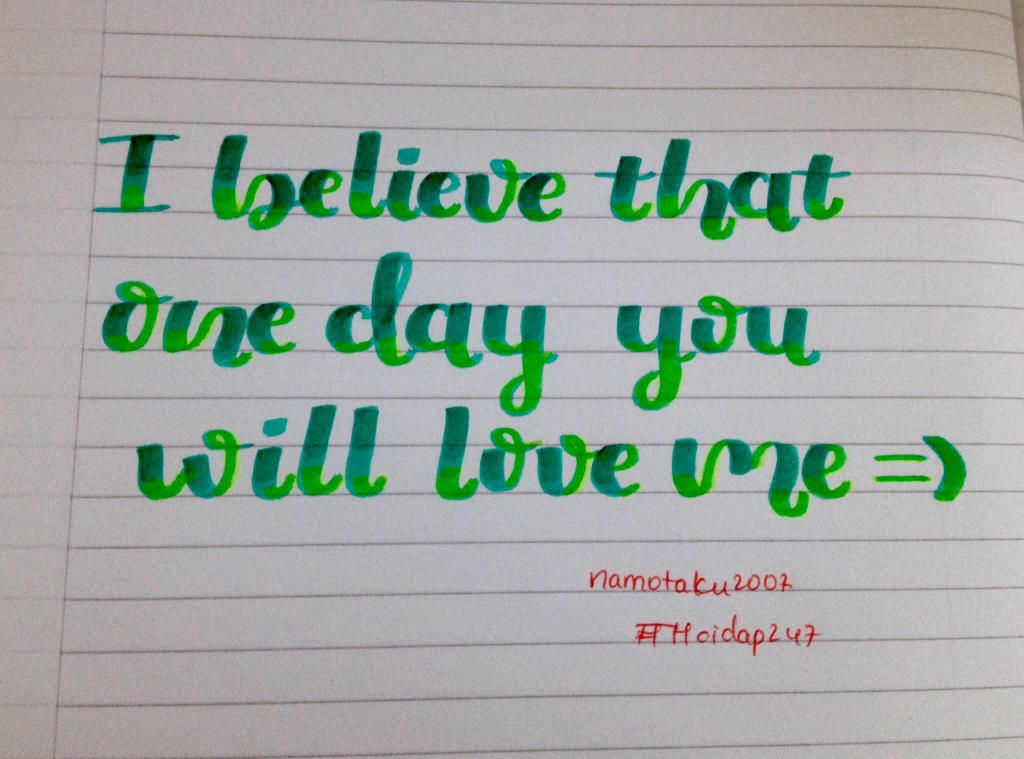 I believe that
one day you
will love me =)
namotaku2007
#Hoidap247